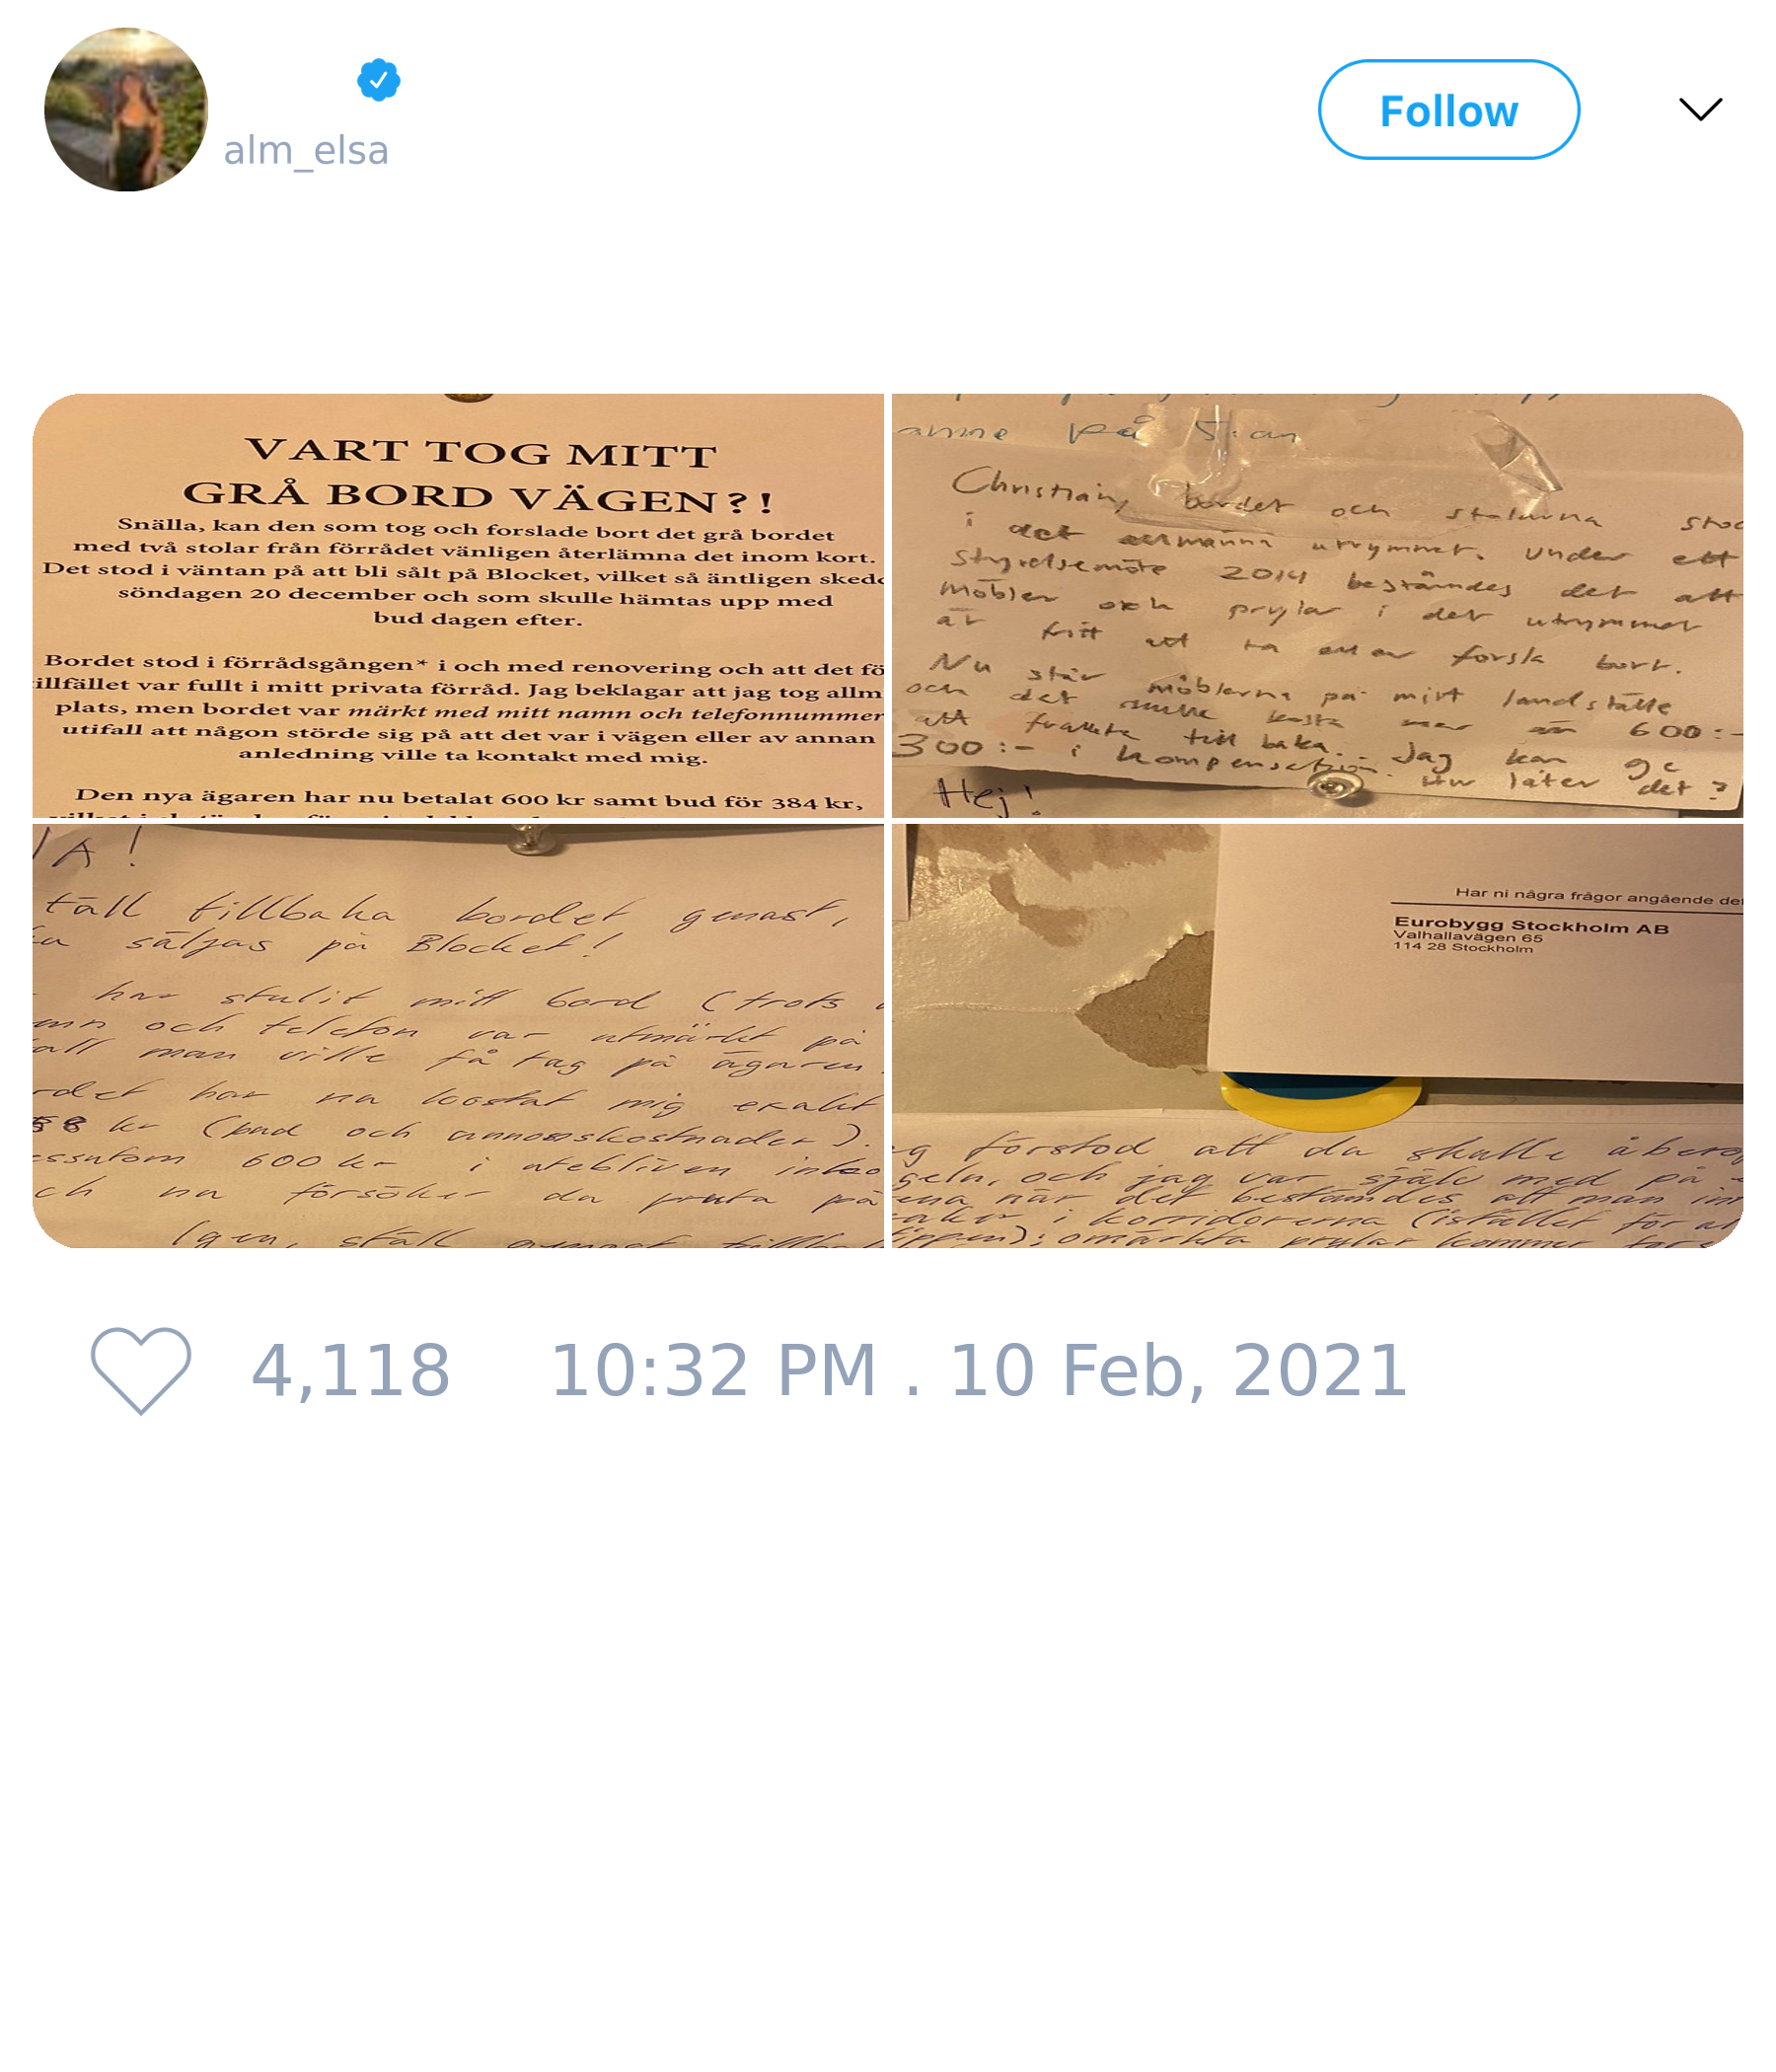 alm_elsa
Follow
VART TOG MITT
GRÅ BORD VÄGEN?!
Snälla, kan den som tog och forslade bort det grå bordet
med två stolar från förrådet vänligen återlämna det inom kort.
Det stod i väntan på att bli sålt på Blocket, vilket så äntligen skedd
söndagen 20 december och som skulle hämtas upp med
bud dagen efter.
Bordet stod i förrådsgången* i och med renovering och att det fö
illfället var fullt i mitt privata förråd. Jag beklagar att jag tog allm
plats, men bordet var märkt med mitt namn och telefonnummer
utifall att någon störde sig på att det var i vägen eller av annan
anledning ville ta kontakt med mig.
Den nya ägaren har nu betalat 600 kr samt bud för 384 kr,
anne på 5:an
Christian, bordet och stolarna stod
i det allmänna utrymmet. Under ett
styrelsemöte 2014 bestämdes det att
möbler och prylar i det utrymmet
är fritt att ta eller forsla bort.
Nu står möblerna på mitt landställe
och det skulle kosta mer än 600:-
att frakta till baka. Jag kan ge
300:- i kompensation. Hur låter det?
Hej!
JA!
täll tillbaka bordet genast,
ka säljas på Blocket!
har stulit mitt bord (trots
mn och telefon var utmärkt på
all man ville få tag på ägaren
rdet har nu kostat mig exakt
88 kr (bud och annonskostnader).
ssutom 600 kr i utebliven inko
ch nu försöker du pruta på
Igen, ställ genast tillba
Har ni några frågor angående de
Eurobygg Stockholm AB
Valhallavägen 65
114 28 Stockholm
g förstod att du skulle åbero
geln, och jag var själv med på
na när det bestämdes att man in
aker i korridorerna (istället för at
ippen); omärkta prylar kommer fors
4,118 10:32 PM . 10 Feb, 2021